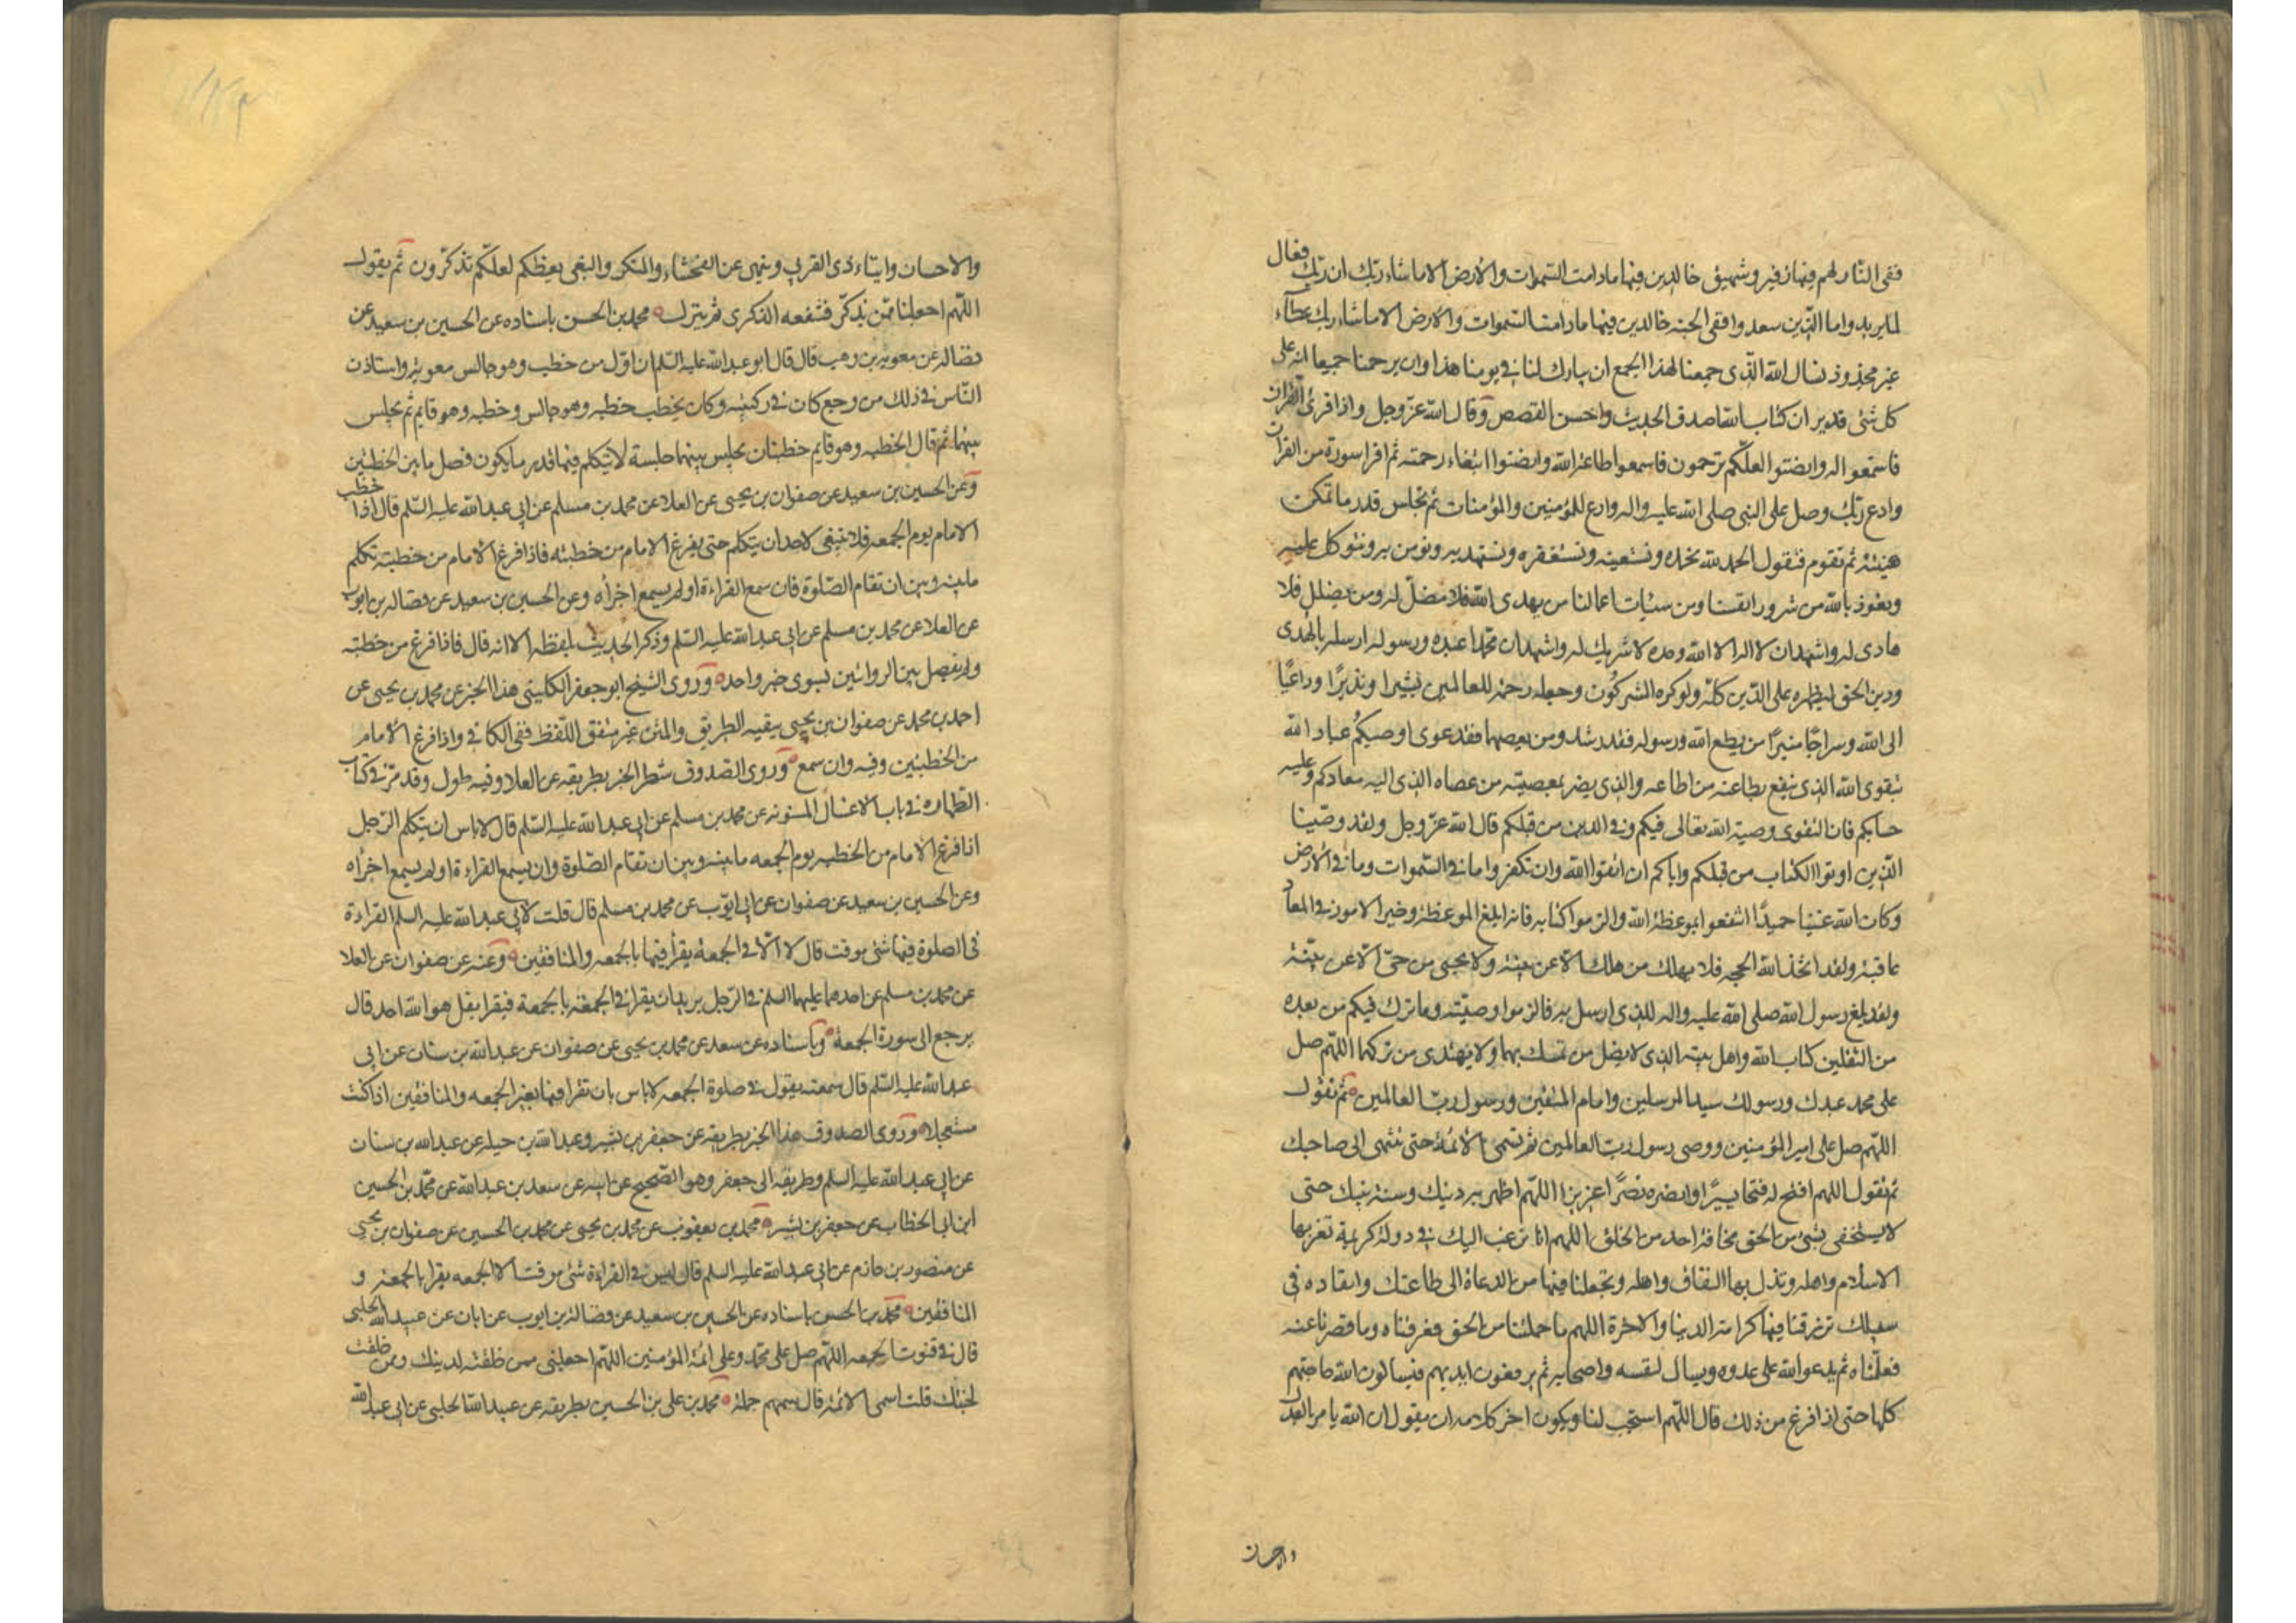 ففی النار لهم فیها زفیر و شهیق خالدین فیها مادامت السموات والارض الا ماشاء ربك ان ربك فعال
لما یرید واما الذین سعدوا ففی الجنه خالدین فیها مادامت السموات والارض الا ماشاء ربك عطاء
غیر مجذوذ نسال الله الذی جمعنا لهذا الجمع ان یبارك لنا فی یومنا هذا وان یرحمنا جمیعا انه علی
كل شئ قدیر ان كتاب الله اصدق الحدیث واحسن القصص وقال الله عز وجل واذا قرئ القران
فاستمعوا له وانصتوا لعلكم ترحمون فاسمعوا طاعة الله وانصتوا ابتغاء رحمته ثم اقرا سورة من القران
وادع ربك وصل علی النبی صلی الله علیه واله وادع للمؤمنین والمؤمنات ثم تجلس قدر ما تمكن
هنیئة ثم تقوم فتقول الحمد لله نحمده ونستعینه ونستغفره ونستهدیه ونومن به ونتوكل علیه
ونعوذ بالله من شرور انفسنا ومن سیئات اعمالنا من یهدی الله فلا مضل له ومن یضلل فلا
هادی له واشهد ان لا اله الا الله وحده لا شریك له واشهد ان محمدا عبده ورسوله ارسله بالهدی
ودین الحق لیظهره علی الدین كله ولو كره المشركون وجعله رحمة للعالمین بشیرا ونذیرًا وداعیًا
الی الله وسراجًا منیرًا من یطع الله ورسوله فقد رشد ومن یعصهما فقد غوی اوصیكم عباد الله
بتقوی الله الذی ینفع بطاعته من اطاعه والذی یضر بمعصیته من عصاه الذی الیه معادكم وعلیه
حسابكم فان التقوی وصیة الله تعالی فیكم وفی الذین من قبلكم قال الله عز وجل ولقد وصّینا
الذین اوتوا الكتاب من قبلكم وایاكم ان اتقوا الله وان تكفروا ما فی السموات وما فی الارض
وكان الله غنیا حمیدًا انتفعوا بموعظة الله والزموا كتابه فانه ابلغ الموعظة وخیر الامور فی المعاد
عاقبة ولقد اتخذ الله الحجه فلا یهلك من هلك الا عن بینة ولا یحیی من حیّ الا عن بیّنة
ولقد بلغ رسول الله صلی الله علیه واله الذی ارسل به فالزموا وصیّته وما ترك فیكم من بعده
من الثقلین كتاب الله واهل بیته الذی لا یضل من تمسك بهما ولا یهتدی من تركهما اللهم صل
علی محمد عبدك ورسولك سید المرسلین وامام المتقین ورسول ربّ العالمین ثم تقول
اللهم صل علی امیر المؤمنین ووصی رسول رب العالمین ثم تسمی الائمة حتی تنتهی الی صاحبك
ثم تقول اللهم افتح له فتحا یسیرًا وانصره نصرًا عزیزا اللهم اظهر به دینك وسنة نبیك حتی
لا یستخفی بشئ من الحق مخافة احد من الخلق اللهم انا نرغب الیك فی دولة كریمة تعز بها
الاسلام واهله وتذل بها النفاق واهله وتجعلنا فیها من الدعاة الی طاعتك والقاده فی
سبیلك ترزقنا فیها كرامة الدنیا والاخرة اللهم ما حملتنا من الحق فعرفناه وما قصرنا عنه
فعلّمناه ثم یدعو الله علی عدوه ویسال لنفسه واصحابه ثم یرفعون ایدیهم فیسالون الله حاجتهم
كلها حتی اذا فرغ من ذلك قال اللهم استجب لنا ویكون اخر كلامه ان یقول ان الله یامر بالعدل
والاحسان
والاحسان وایتاء ذی القربی وینهی عن الفحشاء والمنكر والبغی یعظكم لعلكم تذكّرون ثم یقول
اللهم اجعلنا ممّن یذكّر فتنفعه الذكری ثم ینزل محمد بن الحسن باسناده عن الحسین بن سعید عن
فضاله عن معویة بن وهب قال قال ابو عبد الله علیه السلم ان اول من خطب وهو جالس معویة واستاذن
الناس فی ذلك من وجع كان فی ركبتیه وكان یخطب خطبه وهو جالس وخطبه وهو قایم ثم یجلس
بینهما ثم قال الخطبه وهو قایم خطبتان یجلس بینهما جلسة لا یتكلم فیها قدر ما یكون فصل ما بین الخطبتین
وعن الحسین بن سعید عن صفوان بن یحیی عن العلا عن محمد بن مسلم عن ابی عبد الله علیه السلم قال اذا خطب
الامام یوم الجمعه فلا ینبغی لاحد ان یتكلم حتی یفرغ الامام من خطبته فاذا فرغ الامام من خطبته تكلم
ما بینه وبین ان تقام الصلوة فان سمع القراءة او لم یسمع اجزأه وعن الحسین بن سعید عن فضاله بن ایوب
عن العلا عن محمد بن مسلم عن ابی عبد الله علیه السلم وذكر الحدیث بلفظه الا انه قال فاذا فرغ من خطبته
ولم یفصل بین الروایتین بسوی خبر واحد وروی الشیخ ابو جعفر الكلینی هذا الخبر عن محمد بن یحیی عن
احمد بن محمد عن صفوان بن یحیی ببقیه الطریق والمتن غیر متفق اللفظ ففی الكافی واذا فرغ الامام
من الخطبتین وفیه وان سمع وروی الصدوق شطر الخبر بطریقه عن العلا وفیه طول وقد مرّ فی كتاب
الطهاره فی باب الاغسال المسنونه عن محمد بن مسلم عن ابی عبد الله علیه السلم قال لا باس ان یتكلم الرجل
اذا فرغ الامام من الخطبه یوم الجمعه ما بینه وبین ان تقام الصلوة وان یسمع القراءة او لم یسمع اجزأه
وعن الحسین بن سعید عن صفوان عن ابی ایّوب عن محمد بن مسلم قال قلت لابی عبد الله علیه السلم القراءة
فی الصلوة فیها شئ موقت قال لا الّا فی الجمعة یقرأ فیها بالجمعه والمنافقین وعنه عن صفوان عن العلا
عن محمد بن مسلم عن احدهما علیهما السلم فی الرجل یرید ان یقرا فی الجمعة بالجمعة فیقرا بقل هو الله احد قال
یرجع الی سورة الجمعة وباسناده عن سعد عن محمد بن یحیی عن صفوان عن عبد الله بن سنان عن ابی
عبد الله علیه السلم قال سمعته یقول فی صلوة الجمعه لا باس بان تقرا فیها بغیر الجمعه والمنافقین اذا كنت
مستعجلا وروی الصدوق هذا الخبر بطریقه عن جعفر بن بشیر وعبد الله بن جبله عن عبد الله بن سنان
عن ابی عبد الله علیه السلم وطریقه الی جعفر وهو الصحیح عن ابیه عن سعد بن عبد الله عن محمد بن الحسین
ابن ابی الخطاب عن جعفر بن بشیر محمد بن یعقوب عن محمد بن یحیی عن محمد بن الحسین عن صفوان بن یحیی
عن منصور بن حازم عن ابی عبد الله علیه السلم قال لیس فی القراءة شئ موقت الا الجمعه یقرا بالجمعة و
المنافقین محمد بن الحسن باسناده عن الحسین بن سعید عن فضالة بن ایوب عن ابان عن عبید الله الحلبی
قال فی قنوت الجمعه اللهم صل علی محمد وعلی ائمة المؤمنین اللهم اجعلنی ممن خلقته لدینك وممن خلقت
لجنتك قلت اسمی الائمة قال سمهم جملة محمد بن علی بن الحسین بطریقه عن عبید الله الحلبی عن ابی عبد الله